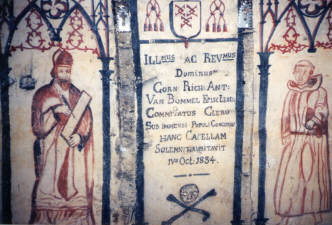 ILLmus AC REVmus
Dominus
CORN RICH: ANT:
VAN BOMMEL EPISC LEOD:
COMMITATUS CLERO
SUB IMMENSI POPULI CONCURSU
HANC CAPELLAM
SOLEMNI
IVa OCT. 1834.